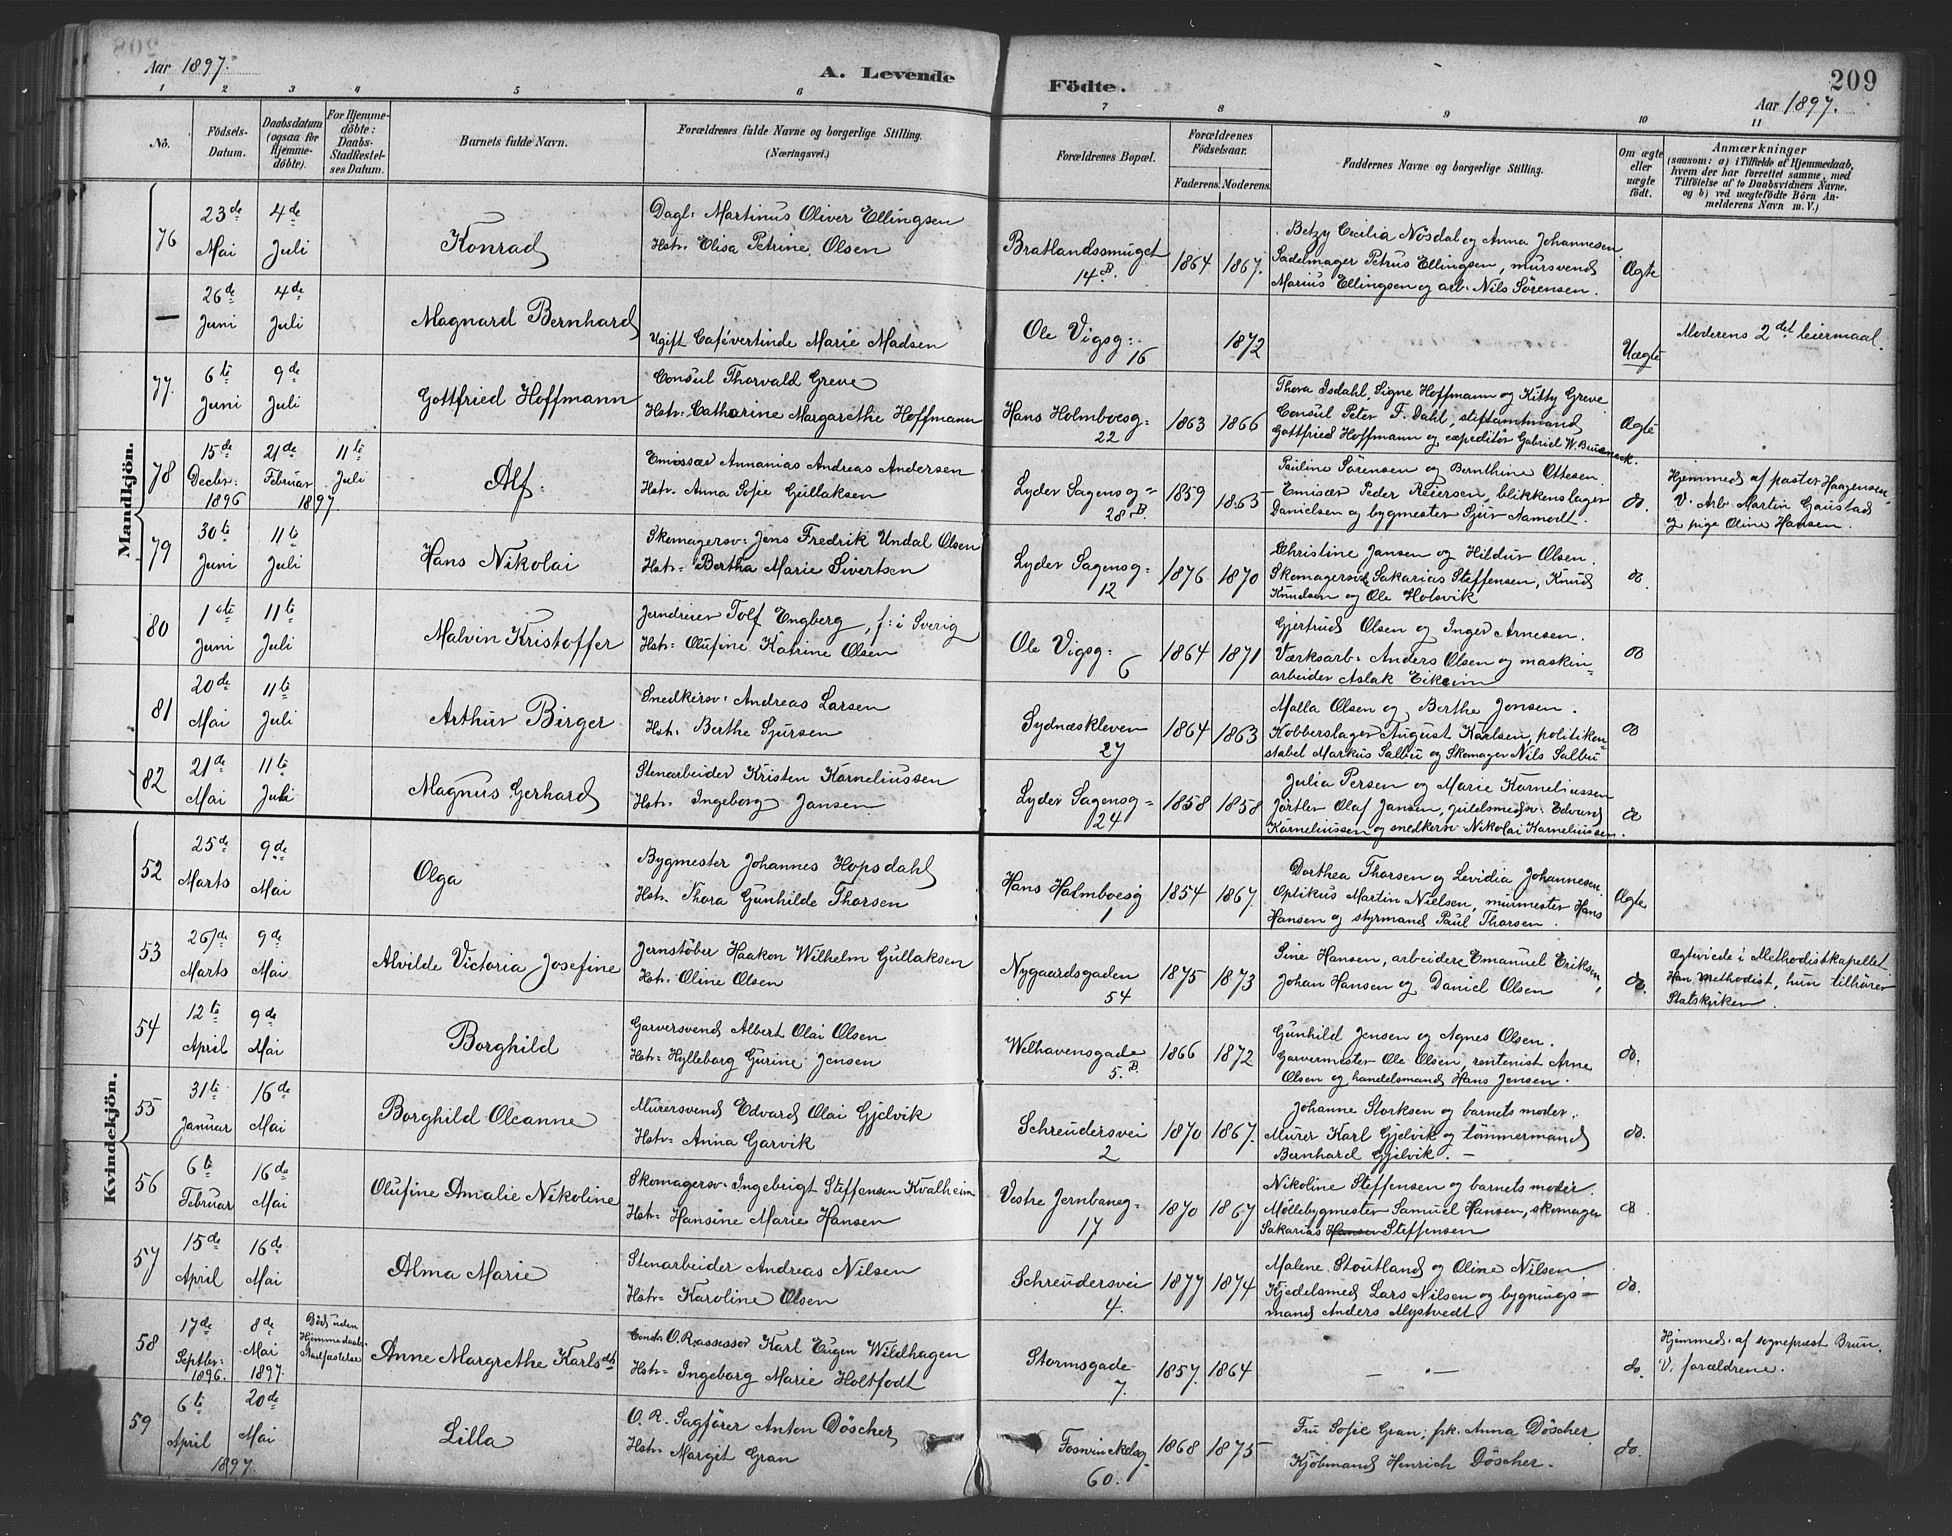 Aar 1897.
A. Levende
Födte.
209
Aar 1897.
1 2 3 4 5 6 7 8 9 10 11
No.
Födsels-Datum.
Daabsdatum (ogsaa for Hjemme-döbte).
For Hjemme-döbte: Daabs-Stadfæstel-ses Datum.
Barnets fulde Navn.
Forældrenes fulde Navne og borgerlige Stilling. (Næringsvei.)
Forældrenes Bopæl.
Forældrenes Födselsaar.
Faderens. Moderens.
Faddernes Navne og borgerlige Stilling.
Om ægte eller uægte födt.
Anmærkninger
(saasom: a) i Tilfælde af Hjemmedaab, hvem der har forrettet samme, med Tilföielse af to Daabsvidners Navne, og b) ved uægtefödte Börn An-melderens Navn m. V.)
Mandkjön.
76 23de Mai 4de Juli
Konrad
Dagl: Martinus Oliver Ellingsen
Hstr: Elisa Petrine Olsen
Bratlandssmuget 14 B.
1864 1867.
Betzy Cecilia Nösdal og Anna Johannesen
Sadelmager Petrus Ellingsen, mursvend
Marius Ellingsen og arb. Nils Sörensen.
Ægte
— 26de Juni 4de Juli
Magnard Bernhard
Ugift Cafévertinde Marie Madsen
Ole Vigsg: 16
1872
Uægte
Moderens 2det leiermaal.
77. 6te Juni 9de Juli
Gottfried Hoffmann
Consul Thorvald Greve
Hstr: Catharine Margarethe Hoffmann
Hans Holmboesg: 22
1863 1866
Thora Isdahl, Signe Hoffmann og Kitty Greve.
Consul Peter F. Dahl, stiftamtmand
Gottfried Hoffmann og expeditör Gabriel W.
Ægte
78 15de Decbr: 1896 21de Februar 1897. 11te Juli
Alf
Emissær Annanias Andreas Andersen
Hstr. Anna Sofie Gullaksen
Lyder Sagensg= 28 B.
1859 1865
Pauline Sörensen og Bernthine Ottesen.
Emisær Peder Reiersen, blikkenslager
Danielsen og bygmester Sjur Aamodt.
do.
Hjemmed af pastor Haagensen
V. Arb Martin Gaustad
og pige Oline Hansen.
79 30te Juni 11te Juli
Hans Nikolai
Skomagersv: Jens Fredrik Undal Olsen
Hstr. Bertha Marie Sivertsen
Lyder Sagensg= 12
1876 1870
Christine Jansen og Hildur Olsen.
Skomagersvd. Sakarias Steffensen, Knud
Knudsen og Ole Holsvik
do
80 1ste Juni 11te Juli
Malvin Kristoffer
Jerndreier Tolf Engberg, f: i Sverig
Hstr: Olufine Katrine Olsen
Ole Vigsg= 6
1864 1871
Gjertrud Olsen og Inger Arnesen.
Værksarb: Anders Olsen og maskin=
arbeider Aslak Eikeim
do
81 20de Mai 11te Juli
Arthur Birger
Snedkersv: Andreas Larsen
Hstr. Berthe Sjursen
Sydnæskleven 27
1864 1863
Malla Olsen og Berthe Jensen.
Kobberslager August Karlsen, politikon=
stabel Markus Salbu og Skomager Nils Salbu
do
82 21de Mai 11te Juli
Magnus Gerhard
Stenarbeider Kristen Korneliussen
Hstr. Ingeborg Jansen
Lyder Sagensg= 24
1858 1858
Julia Persen og Marie Korneliussen
Jörtler Olaf Jansen, Edvard
Korneliussen og snedkersv Nikolai Korneliussen.
do
Kvindekjön.
52 25de Marts 9de Mai
Olga
Bygmester Johannes Hopsdahl
Hstr. Thora Gunhilde Thorsen
Hans Holmboesg 1
1854 1867.
Dorthea Thorsen og Levidia Johannesen.
Optikus Martin Nielsen, murmester Hans
Hansen og styrmand Paul Thorsen.
Ægte
53 26de Marts 9de Mai
Alvilde Victoria Josefine
Jernstöber Haakon Wilhelm Gullaksen
Hstr: Oline Olsen
Nygaardsgaden 54
1875 1873
Sine Hansen, arbeidere Emanuel Eriksen,
Johan Hansen og Daniel Olsen
do.
Ægteviede i Methodistkapellet
Han Methodist, hun tilhörer
Statskirken.
54 12te April 9de Mai
Borghild
Garversvend Albert Olai Olsen
Hstr= Hylleborg Gurine Jensen
Welhavensgade 5. B.
1866 1872
Gunhild Jensen og Agnes Olsen.
Garvermester Ole Olsen, rentenist Arne
Olsen og handelsmand Hans Jensen.
do.
55 31te Januar 16de Mai
Borghild Oleanne
Murersvend Edvard Olai Gjelvik
Hstr= Anna Garvik
Schreudersvei 2
1870 1867.
Johanne Storksen og barnets moder.
Murer Karl Gjelvik og tömmermand
Bernhard Gjelvik. —
do.
56 6te Februar 16de Mai
Olufine Amalie Nikoline
Skomagersv: Ingebrigt Steffensen Kvalheim
Hstr. Hansine Marie Hansen
Vestre Jernbaneg= 17
1870 1867
Nikoline Steffensen og barnets moder.
Möllebygmester Samuel Hansen, skomager
Sakarias Hansen Steffensen
do
57 15de April 16de Mai
Alma Marie
Stenarbeider Andreas Nilsen
Hstr= Karoline Olsen
Schreudersvei 4.
1877 1874
Malene Stoutland og Oline Nilsen.
Kjedelsmed Lars Nilsen og bygnings=
mand Anders Mystvedt
do.
58 17de Septbr: 1896. 8de Mai 1897.
Död uden Hjemmedaabs Stadfæstelse
Anne Margrethe Karlsdtr
Const. O. R. assessor Karl Eugen Wildhagen
Hstr= Ingeborg Marie Holtfodt
Stormsgade 7.
1857. 1864
— „ —
do.
Hjemmed. af sognepræst Brun.
V. forældrene.
59 6te April 20de Mai 1897.
Lilla
O. R. Sagförer Anton Döscher
Hstr. Margit Gran
Fosvinckelsg. 60.
1868 1875
Fru Sofie Gran, frk. Anna Döscher.
Kjöbmand Henrich Döscher.
do.